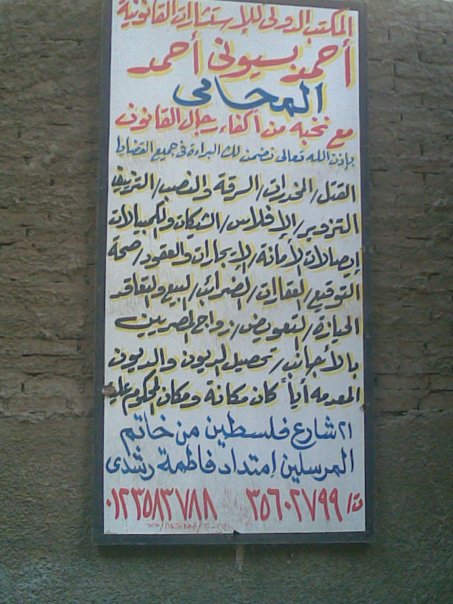 المكتب الدولى للإستشارات القانونية
أحمد بسيونى أحمد
المحامى
مع نخبة من أكفاء رجال القانون
بإذن الله تعالى نضمن لك البراءة فى جميع القضايا
القتل/المخدرات/السرقة والنصب/التزييف
التزوير/الإفلاس/الشيكات والكمبيالات
إيصالات الأمانة/الإيجارات والعقود/صحة
التوقيع/العقارات/الضرائب/البيع والتعاقد
الحيازة/التعويض/زواج المصريين
بالأجانب/تحصيل الديون والديون
المعدمه أياً كان مكانة ومكان المحكوم عليه
٢١ شارع فلسطين من خاتم
المرسلين إمتداد فاطمة رشدى
ت/ ٣٥٦٠٢٧٩٩ ٠١٢٣٥٨٣٧٨٨